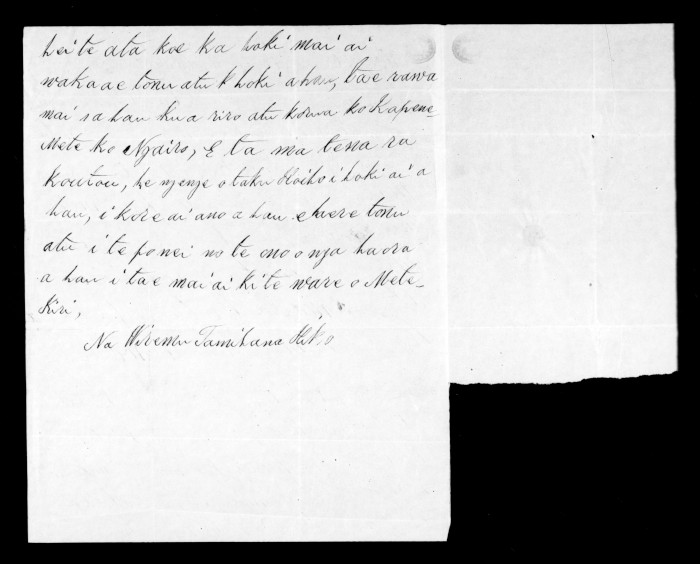 hei te ata koe ka hoki mai ai
wakaae tonu atu k hoki ahau, tae rawa
mai sahau kua riro atu korua ko Kapene
Mete ko Ngairo, E ta ma tena ra
koutou, he ngenge o taku Hoiho i hoki ai a
hau, i kore ai ano a hau e haere tonu
atu i te po nei no te ono o nga haora
a hau i tae mai ai ki te ware o Mete-
Kiri,
Na Wiremu Tamihana Hiko